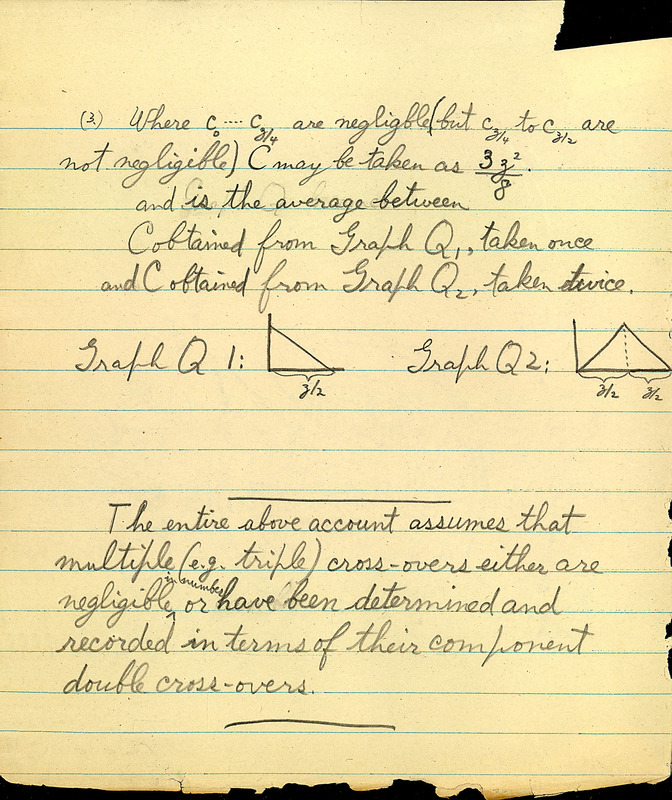 (3.) Where c₀ ···· c_z/4 are negligble (but c_z/4 to c_z/2 are
not negligible) C may be taken as 3z²/8.
and is the average between
C obtained from Graph Q₁, taken once
and C obtained from Graph Q₂, taken twice.
Graph Q 1: Graph Q 2:
z/2 z/2 z/2
The entire above account assumes that
multiple (e.g. triple) cross-overs either are
in number
negligible, or have been determined and
recorded in terms of their component
double cross-overs.